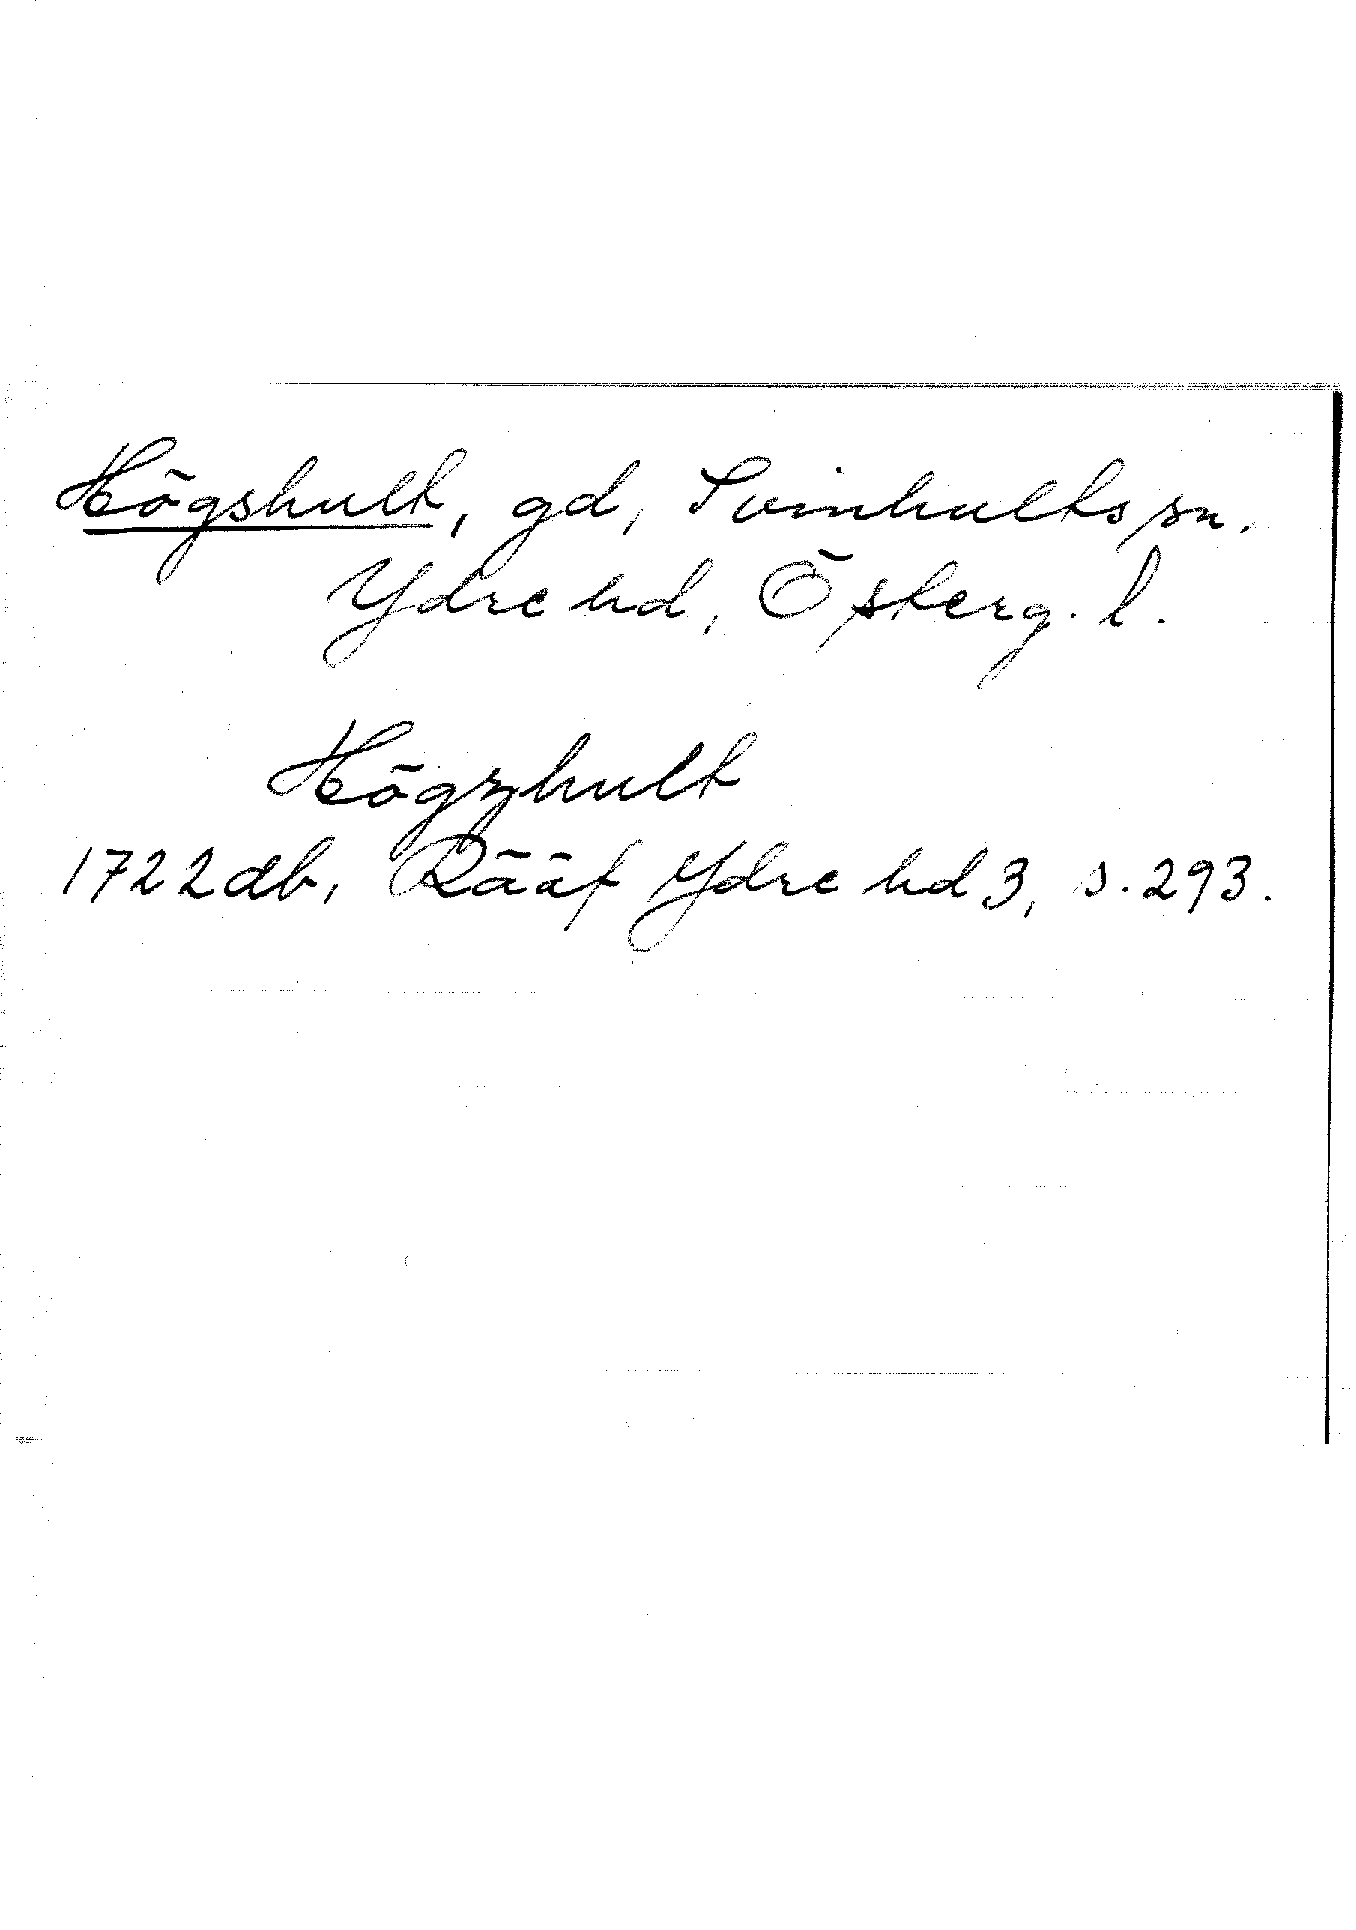 Högshult, gd, Svinhults sn.
Ydre hd, Österg. l.
Högzhult
1722 db, Rääf Ydre hd 3, s. 293.